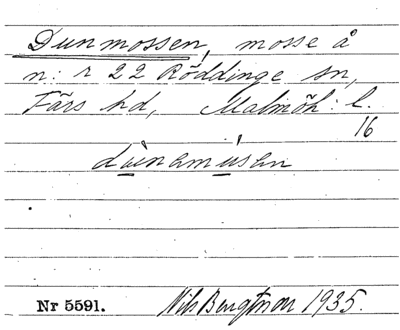 Dunmossen, mosse å
n: r 22 Röddinge sn,
Färs hd, Malmöh: l.
16
Nr 5591. Nils Bengtsson 1935.